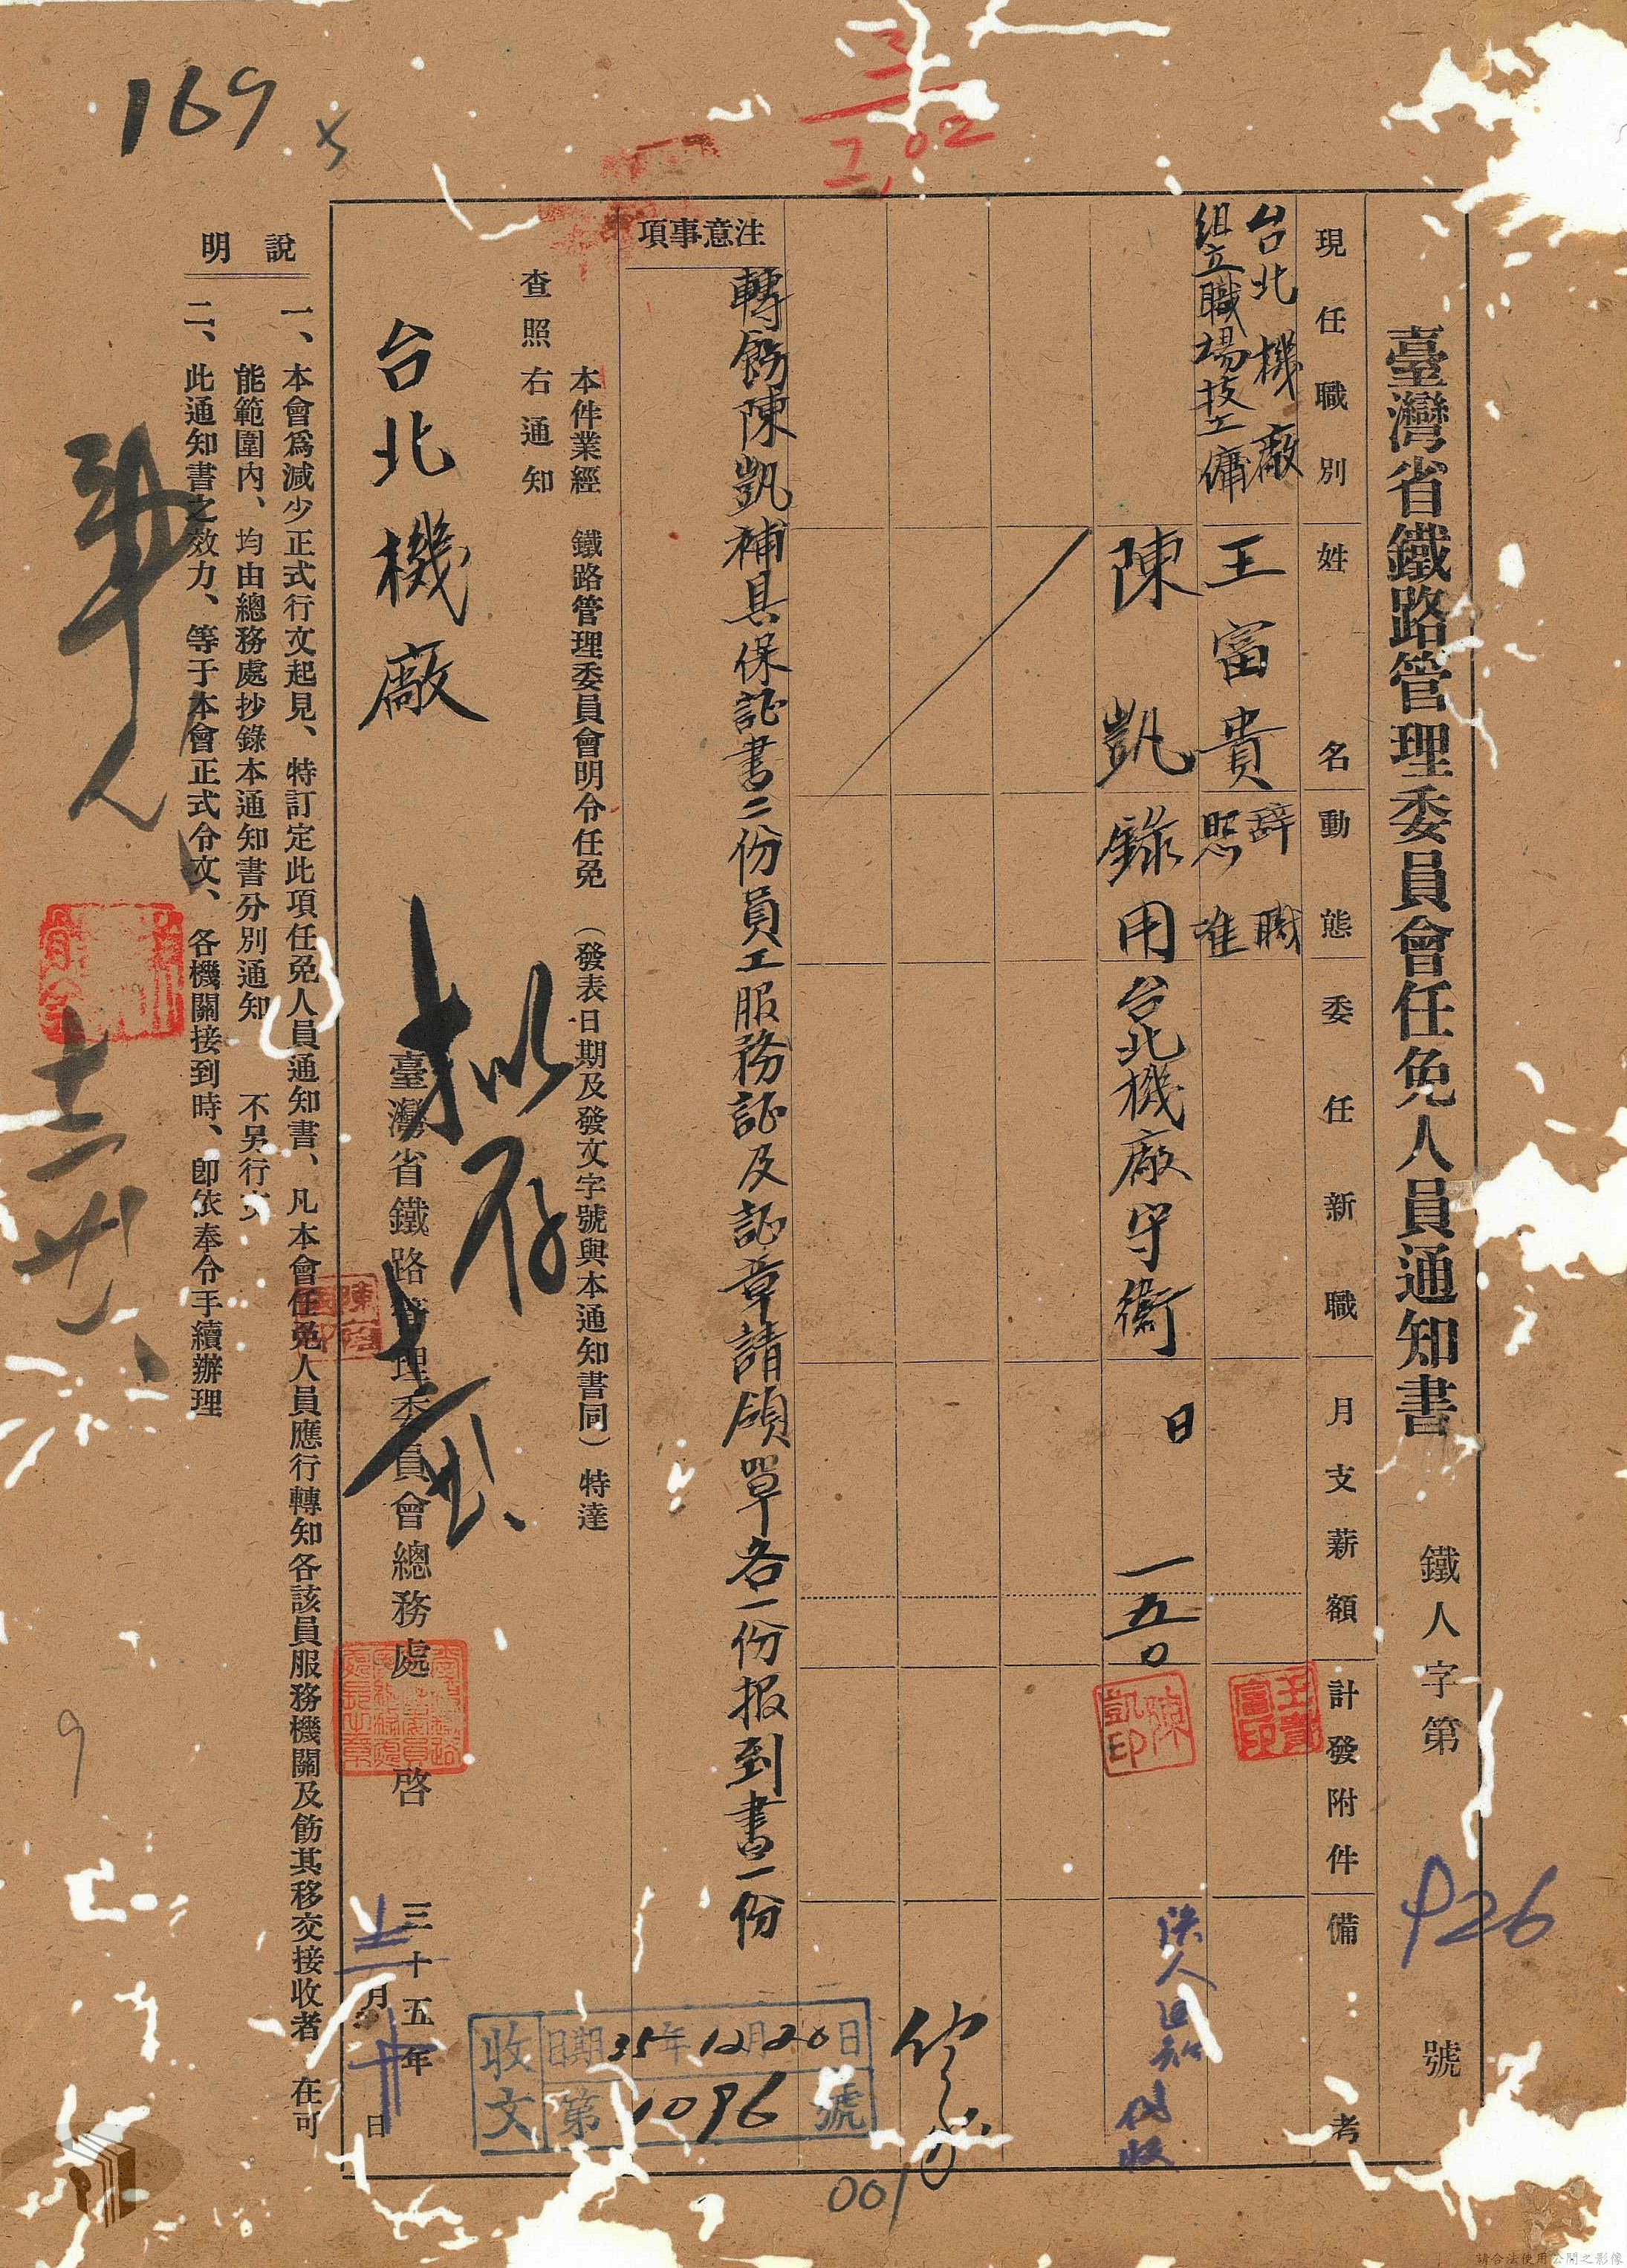 臺灣省鐵路管理委員會任免人員通知書
鐵人字第 926 號
現任職別
姓名
動態
委任新職
月支薪額
計發附件
備考
台北機廠
組立職場技工傭
王富貴
辭職
照准
陳凱
錄用
台北機廠守衛
日 一五〇
陳凱印
注意事項
轉飭陳凱補具保証書二份員工服務証及証章請領單各一份報到書一份
本件業經 鐵路管理委員會明令任免 (發表日期及發文字號與本通知書同) 特達
查照右通知
台北機廠
擬存
臺灣省鐵路管理委員會總務處 啓
三十五年
月 日
收文
日期 35年12月20日
第 1096 號
說明
一、本會為減少正式行文起見、特訂定此項任免人員通知書、凡本會任免人員應行轉知各該員服務機關及飭其移交接收者、在可
能範圍內、均由總務處抄錄本通知書分別通知 不另行文
二、此通知書之效力、等于本會正式令文、各機關接到時、卽依奉令手續辦理
169
2,02
001
9
請合法使用公開之影像